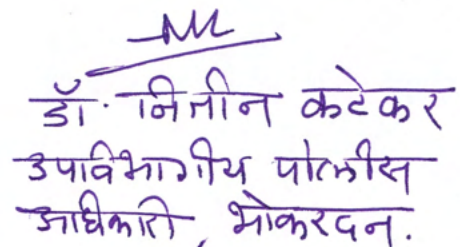 डॉ. नितीन कटेकर
उपविभागीय पोलीस
अधिकारी, भोकरदन.